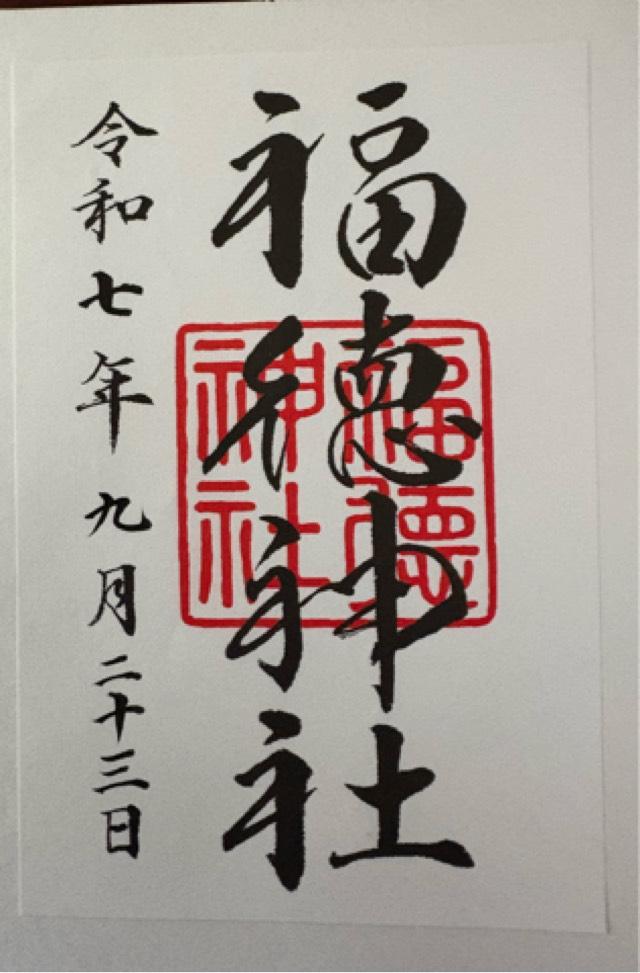 福徳神社
福徳
神社
令和七年九月二十三日